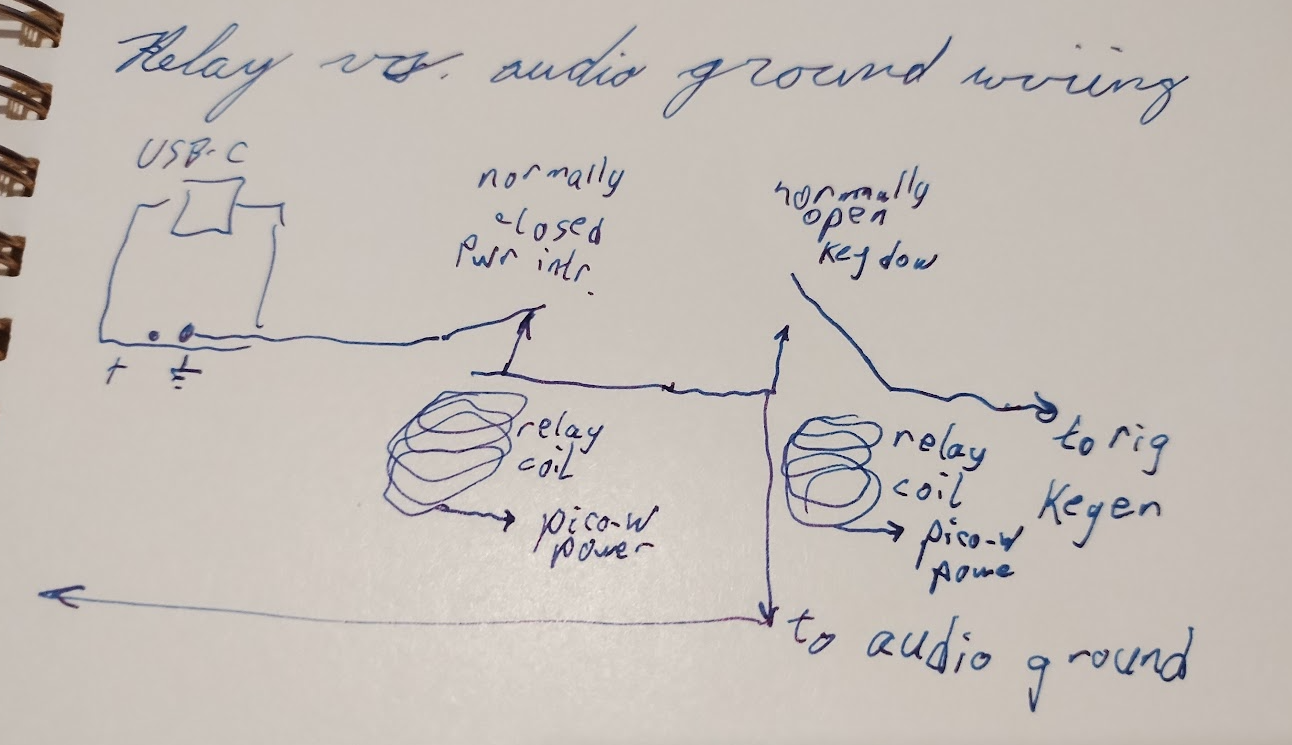 Relay vs. audio ground wiring
USB-C
normally
closed
Pwr intr.
normally
open
Key dow
+
relay
coil
pico-w
power
relay
coil
pico-w
powe
to rig
Keyen
to audio ground